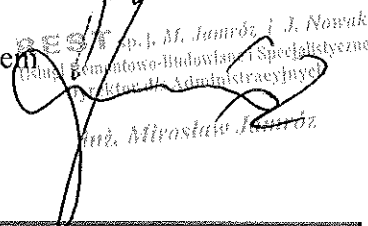 REST sp.j. M. Jamróz i J. Nowak
em
Usługi Remontowo-Budowlane i Specjalistyczne
Dyrektor ds. Administracyjnych
inż. Mirosław Jamróz